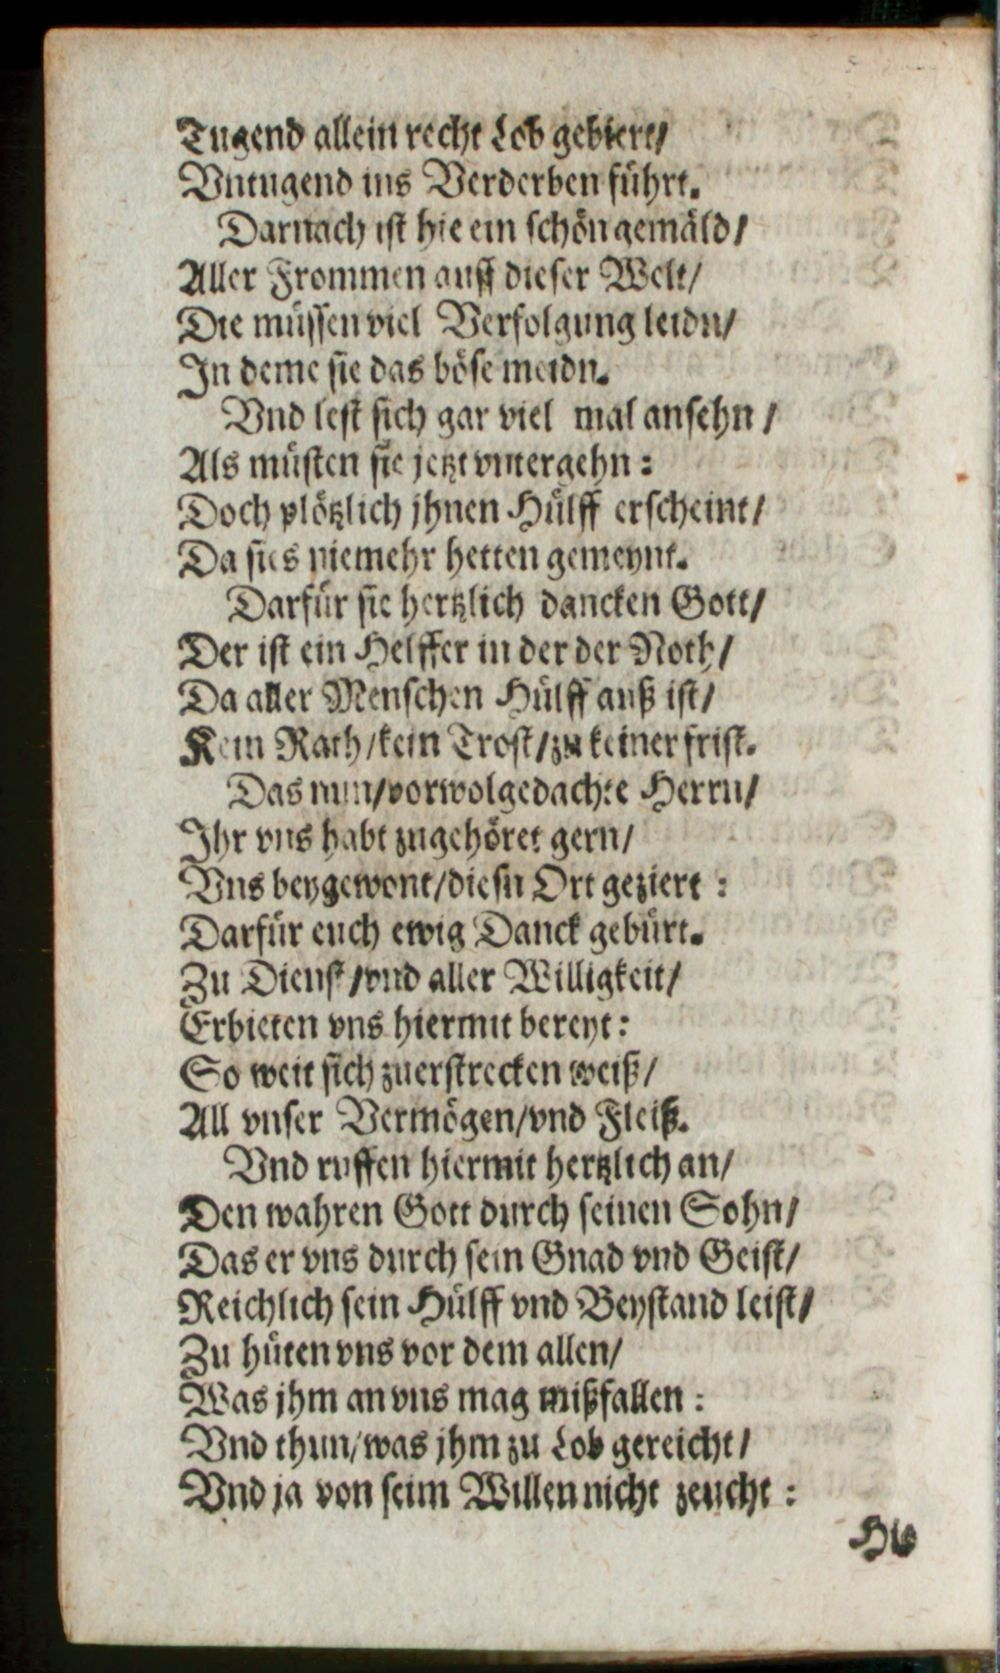 Tugend allein recht Lob gebiert/
Vntugend ins Verderben führt.
Darnach ist hie ein schön gemäld/
Aller Frommen auff dieser Welt/
Die müssen viel Verfolgung leidn/
In deme sie das böse meidn.
Vnd lest sich gar viel mal ansehn/
Als müsten sie jetzt vntergehn:
Doch plötzlich jhnen Hülff erscheint/
Da sies niemehr hetten gemeynt.
Darfür sie hertzlich dancken Gott/
Der ist ein Helffer in der der Noth/
Da aller Menschen Hülff auß ist/
Kein Rath/kein Trost/zu keiner frist.
Das nun/vorwolgedachte Herrn/
Ihr vns habt zugehöret gern/
Vns beygewont/diesn Ort geziert:
Darfür euch ewig Danck gebürt.
Zu Dienst/vnd aller Willigkeit/
Erbieten vns hiermit bereyt:
So weit sich zuerstrecken weiß/
All vnser Vermögen/vnd Fleiß.
Vnd ruffen hiermit hertzlich an/
Den wahren Gott durch seinen Sohn/
Das er vns durch sein Gnad vnd Geist/
Reichlich sein Hülff vnd Beystand leist/
Zu hüten vns vor dem allen/
Was jhm an vns mag mißfallen:
Vnd thun/was jhm zu Lob gereicht/
Vnd ja von seim Willen nicht zeucht: